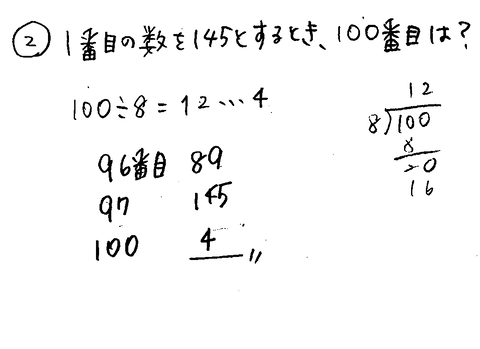 ② 1番目の数を145とするとき、100番目は?
100÷8=12…4
12
8)100
8
20
16
96番目 89
97 145
100 4